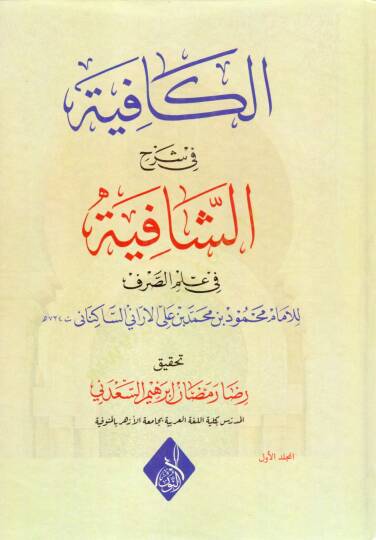 الكافية
في شرح
الشافية
في علم الصرف
للإمام محمود بن محمد بن علي الأراني الساكناني ت ٧٣٤ هـ
تحقيق
رضا رمضان إبرهيم السعدني
المدرس بكلية اللغة العربية بجامعة الأزهر بالمنوفية
المجلد الأول